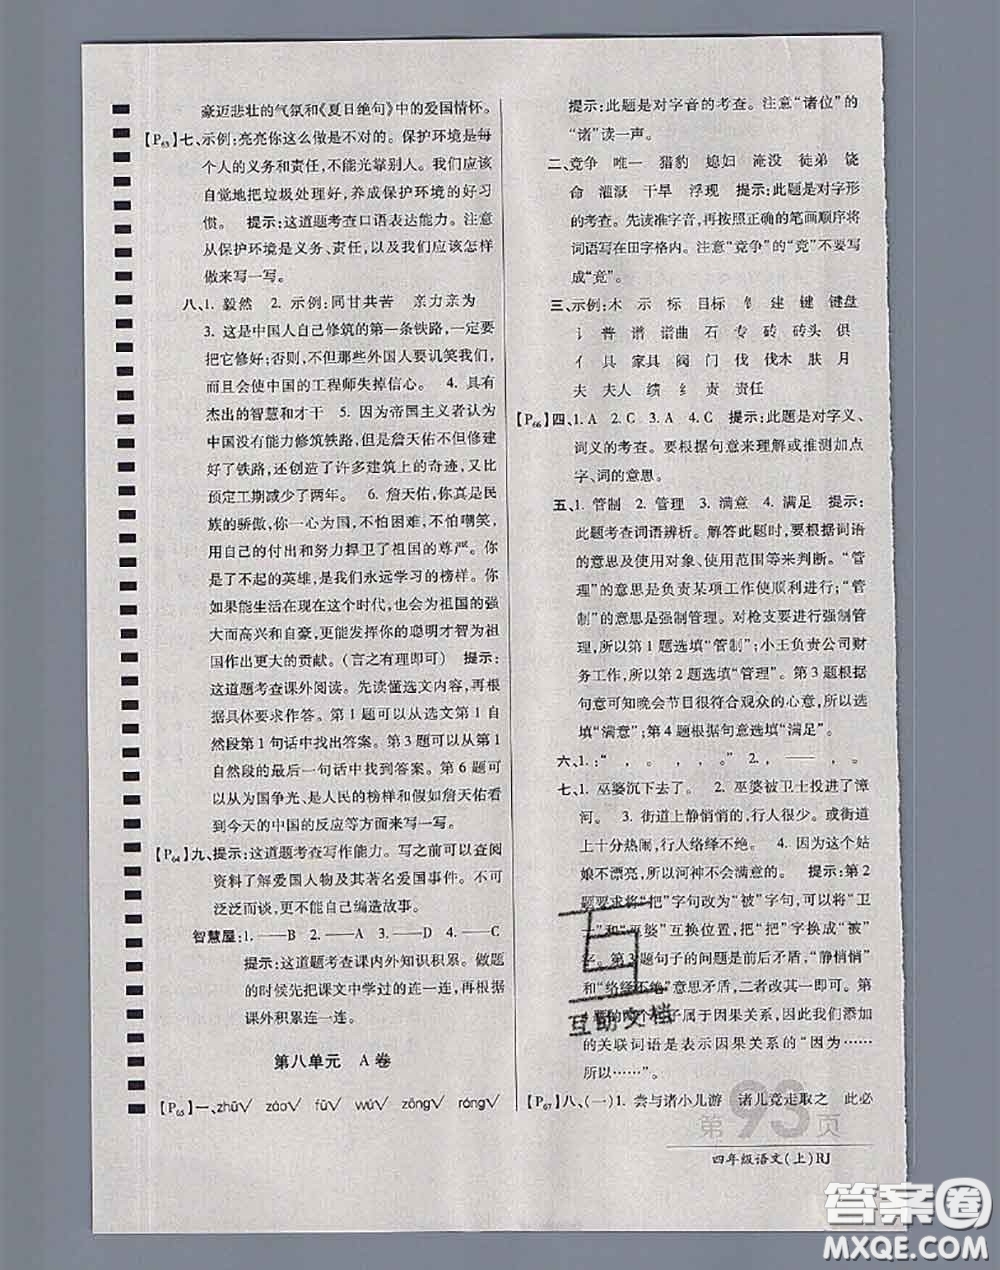 豪迈悲壮的气氛和《夏日绝句》中的爱国情怀。
【P63】七、示例:亮亮你这么做是不对的。保护环境是每
个人的义务和责任,不能光靠别人。我们应该
自觉地把垃圾处理好,养成保护环境的好习
惯。 提示:这道题考查口语表达能力。注意
从保护环境是义务、责任,以及我们应该怎样
做来写一写。
八、1. 毅然 2. 示例:同甘共苦 亲力亲为
3. 这是中国人自己修筑的第一条铁路,一定要
把它修好;否则,不但那些外国人要讥笑我们,
而且会使中国的工程师失掉信心。 4. 具有
杰出的智慧和才干 5. 因为帝国主义者认为
中国没有能力修筑铁路,但詹天佑不但修建
好了铁路,还创造了许多建筑上的奇迹,又比
预定工期减少了两年。 6. 詹天佑,你真是民
族的骄傲,你一心为国,不怕困难,不怕嘲笑,
用自己的付出和努力捍卫了祖国的尊严。你
是了不起的英雄,是我们永远学习的榜样。你
如果能生活在现在这个时代,也会为祖国的强
大而高兴和自豪,更能发挥你的聪明才智为祖
国作出更大的贡献。(言之有理即可) 提示:
这道题考查课外阅读。先读懂选文内容,再根
据具体要求作答。第1题可以从选文第1自
然段第1句话中找出答案。第3题可以从第1
自然段的最后一句话中找到答案。第6题可
以从为国争光、是人民的榜样和假如詹天佑看
到今天的中国的反应等方面来写一写。
【P64】九、提示:这道题考查写作能力。写之前可以查阅
资料了解爱国人物及其著名爱国事件。不可
泛泛而谈,更不能自己编造故事。
智慧屋:1.——B 2.——A 3.——D 4.——C
提示:这道题考查课内外知识积累。做题
的时候先把课文中学过的连一连,再根据
课外积累连一连。
第八单元 A卷
【P65】一、zhū√ záo√ fū√ wú√ zōng√ ráng√
提示:此题是对字音的考查。注意“诸位”的
“诸”读一声。
二、竞争 唯一 猎豹 媳妇 淹没 徒弟 饶
命 灌溉 干旱 浮现 提示:此题是对字形
的考查。先读准字音,再按照正确的笔画顺序将
词语写在田字格内。注意“竞争”的“竞”不要写
成“竟”。
三、示例:木 示 标 目标 钅 建 键 键盘
讠 普 谱 谱曲 石 专 砖 砖头 俱
亻 具 家具 阀 门 伐 伐木 肤 月
夫 夫人 绩 纟 责 责任
【P66】四、1. A 2. C 3. A 4. C 提示:此题是对字义、
词义的考查。要根据句意来理解或推测加点
字、词的意思。
五、1. 管制 2. 管理 3. 满意 4. 满足 提示:
此题考查词语辨析。解答此题时,要根据词语
的意思及使用对象、使用范围等来判断。“管
理”的意思是负责某项工作使顺利进行;“管
制”的意思是强制管理。对枪支要进行强制管
理,所以第1题选填“管制”;小王负责公司财
务工作,所以第2题选填“管理”。第3题根据
句意可知晚会节目很符合观众的心意,所以选
填“满意”;第4题根据句意选填“满足”。
六、1. : “ , 。 , 。 ” 2. , —— , 。
七、1. 巫婆沉下去了。 2. 巫婆被卫士投进了漳
河。 3. 街道上静悄悄的,行人很少。或街道
上十分热闹,行人络绎不绝。 4. 因为这个姑
娘不漂亮,所以河神不会满意的。 提示:第2
题要求将“把”字句改为“被”字句,可以将“卫
士”和“巫婆”互换位置,把“把”字换成“被”
字。第3题句子的问题是前后矛盾,“静悄悄”
和“络绎不绝”意思矛盾,二者改其一即可。第
4题的两个句子属于因果关系,因此我们添加
的关联词语是表示因果关系的“因为……
所以……”。
【P67】八、(一)1. 尝与诸小儿游 诸儿竞走取之 此必
第93页
四年级语文(上)RJ
互助文档
答案圈
MXQE.COM